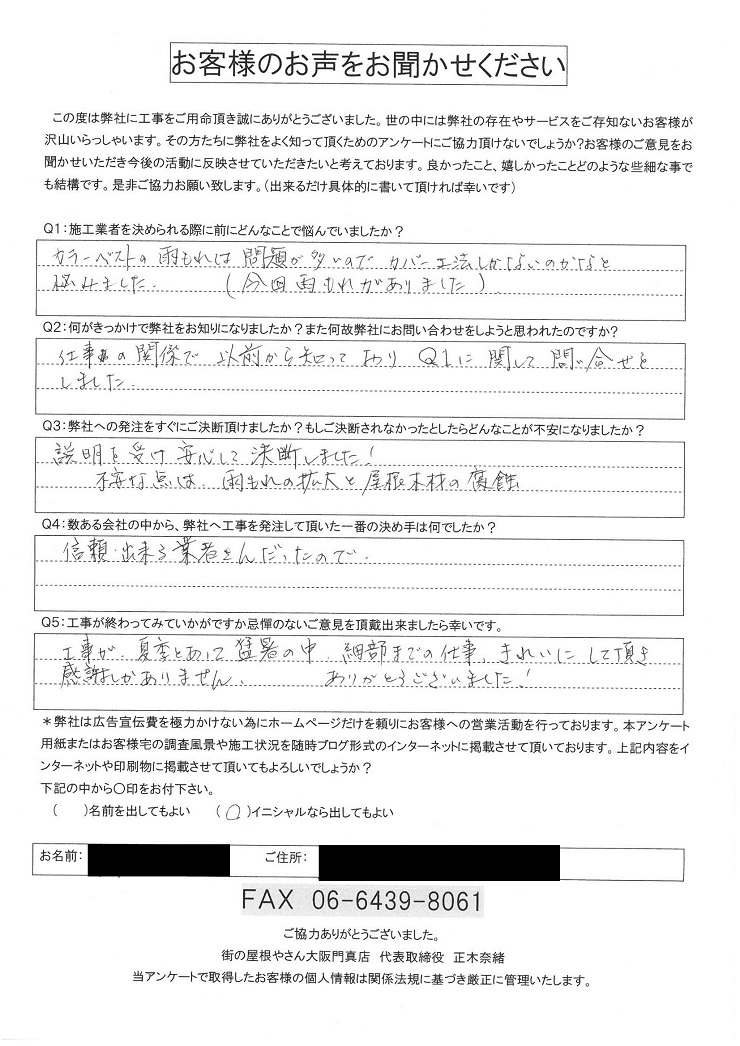 お客様のお声をお聞かせください
この度は弊社に工事をご用命頂き誠にありがとうございました。世の中には弊社の存在やサービスをご存知ないお客様が
沢山いらっしゃいます。その方たちに弊社をよく知って頂くためのアンケートにご協力頂けないでしょうか?お客様のご意見をお
聞かせいただき今後の活動に反映させていただきたいと考えております。良かったこと、嬉しかったことどのような些細な事で
も結構です。是非ご協力お願い致します。(出来るだけ具体的に書いて頂ければ幸いです)
Q1:施工業者を決められる際に前にどんなことで悩んでいましたか?
カラーベストの雨もれは問題が多いのでカバー工法しかないのかなと
悩みました. (今回雨もれがありました)
Q2:何がきっかけで弊社をお知りになりましたか?また何故弊社にお問い合わせをしようと思われたのですか?
仕事の関係で以前から知っておりQ1に関して問い合せを
しました.
Q3:弊社への発注をすぐにご決断頂けましたか?もしご決断されなかったとしたらどんなことが不安になりましたか?
説明を受け安心して決断しました!
不安な点は、雨もれの拡大と屋根木材の腐蝕
Q4:数ある会社の中から、弊社へ工事を発注して頂いた一番の決め手は何でしたか?
信頼出来る業者さんだったので.
Q5:工事が終わってみていかがですか忌憚のないご意見を頂戴出来ましたら幸いです。
工事が、夏季とあって猛暑の中、細部までの仕事、きれいにして頂き
感謝しかありません. ありがとうございました!
*弊社は広告宣伝費を極力かけない為にホームページだけを頼りにお客様への営業活動を行っております。本アンケート
用紙またはお客様宅の調査風景や施工状況を随時ブログ形式のインターネットに掲載させて頂いております。上記内容をイ
ンターネットや印刷物に掲載させて頂いてもよろしいでしょうか?
下記の中から〇印をお付下さい。
( )名前を出してもよい (○)イニシャルなら出してもよい
お名前: ご住所:
FAX 06-6439-8061
ご協力ありがとうございました。
街の屋根やさん大阪門真店 代表取締役 正木奈緒
当アンケートで取得したお客様の個人情報は関係法規に基づき厳正に管理いたします。